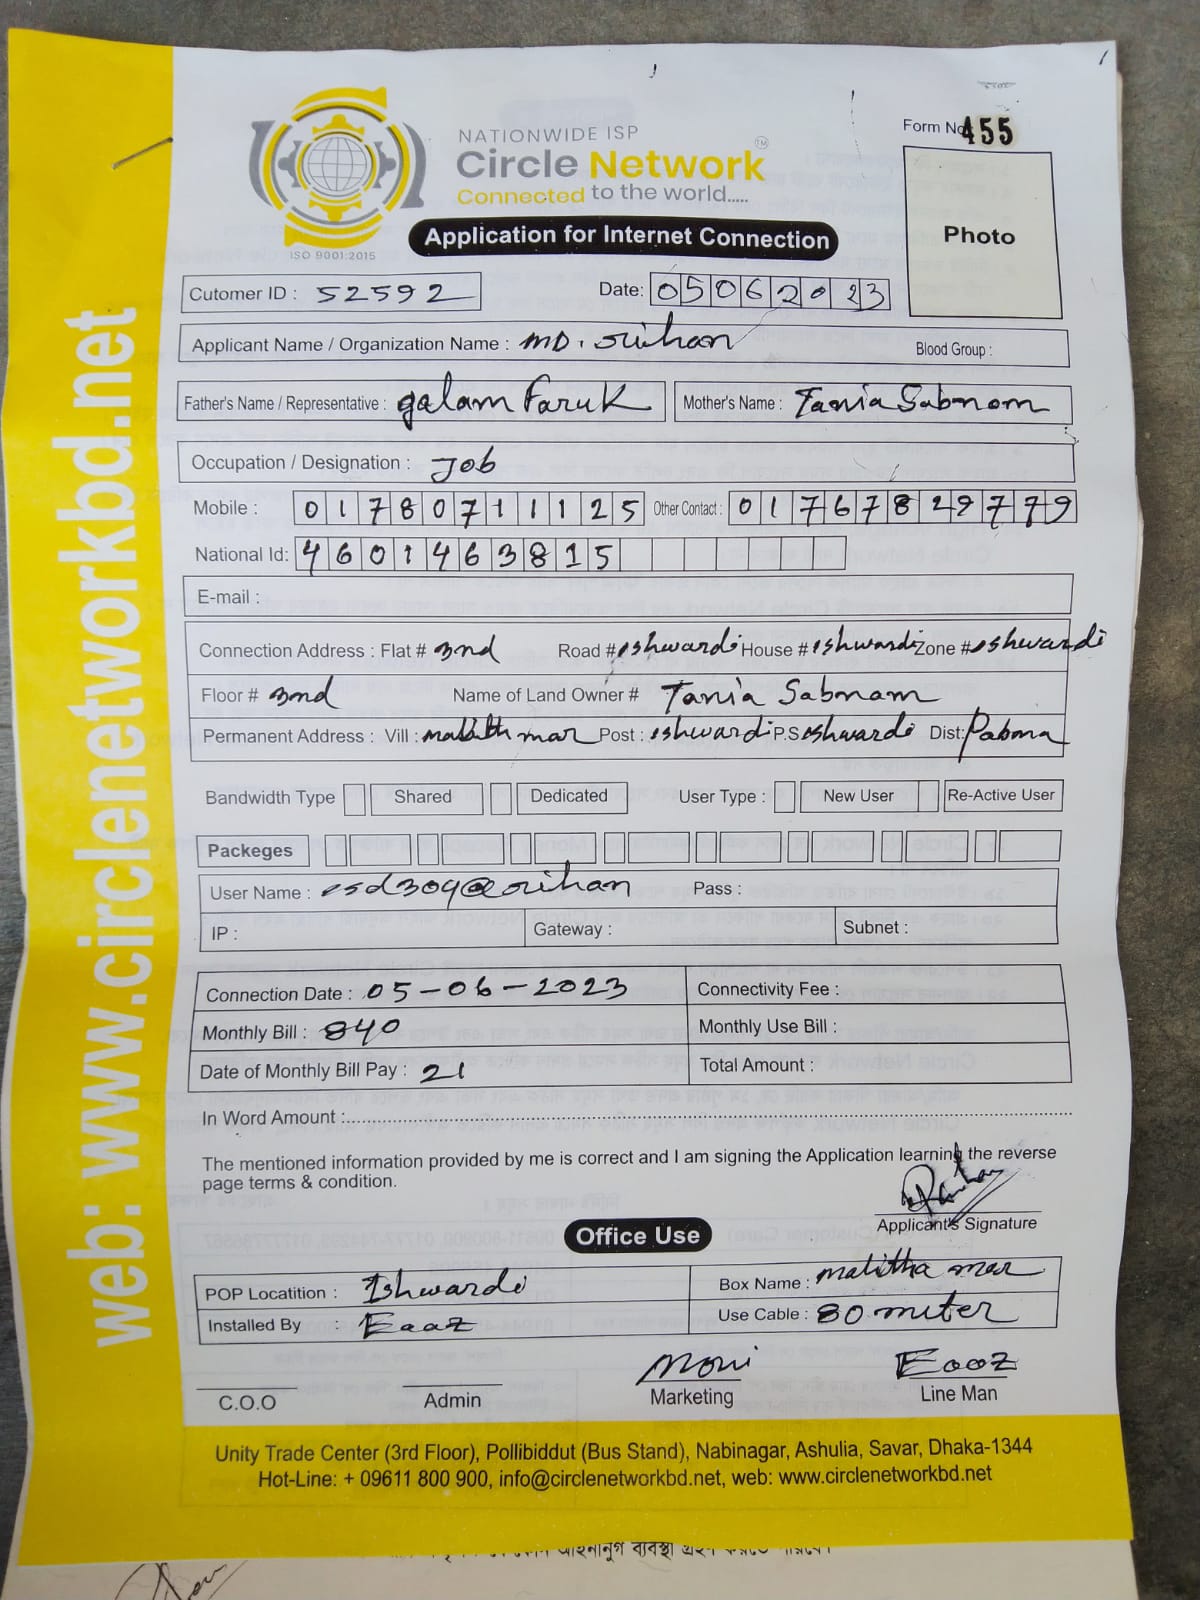 NATIONWIDE ISP
Circle Network TM
Connected to the world.....
ISO 9001:2015
Form No 455
Photo
Application for Internet Connection
Cutomer ID : 52592
Date: 05062023
Applicant Name / Organization Name : MD. orihan
Blood Group :
Father's Name / Representative : galam Faruk
Mother's Name : Tania Sabnom
Occupation / Designation : Job
Mobile : 01780711125 Other Contact : 01767829779
National Id: 4601463815
E-mail :
Connection Address : Flat # 3nd Road # ishwardi House # ishwardi Zone # ishwardi
Floor # 3nd Name of Land Owner # Tania Sabnam
Permanent Address : Vill : mar Post : ishwardi P.S ishwardi Dist: Pabna
Bandwidth Type Shared Dedicated User Type : New User Re-Active User
Packeges
User Name : esd304@orihan Pass :
IP : Gateway : Subnet :
Connection Date : 05-06-2023 Connectivity Fee :
Monthly Bill : 840 Monthly Use Bill :
Date of Monthly Bill Pay : 21 Total Amount :
In Word Amount :
The mentioned information provided by me is correct and I am signing the Application learning the reverse
page terms & condition.
Applicant's Signature
Office Use
POP Locatition : Ishwardi Box Name : malitha mar
Installed By : Eaaz Use Cable : 80 miter
Moni Eaaz
C.O.O Admin Marketing Line Man
Unity Trade Center (3rd Floor), Pollibiddut (Bus Stand), Nabinagar, Ashulia, Savar, Dhaka-1344
Hot-Line: + 09611 800 900, info@circlenetworkbd.net, web: www.circlenetworkbd.net
web: www.circlenetworkbd.net